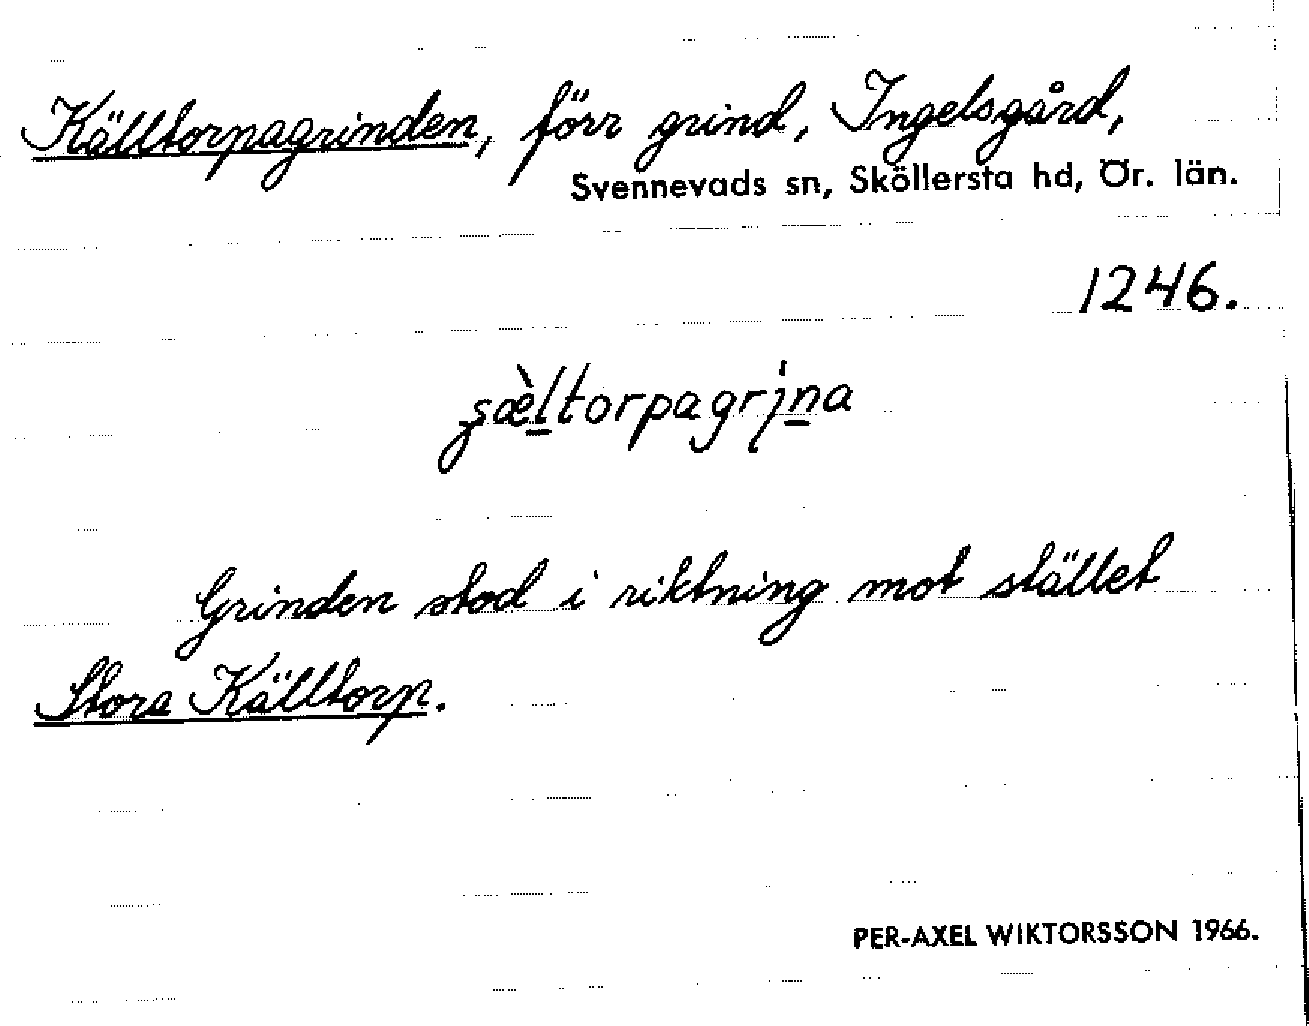 Källtorpagrinden, förr grind, Ingelsgård,
Svennevads sn, Sköllersta hd, Ör. län.
1246.
ʂæ̀l̲torpagrịn̲a
Grinden stod i riktning mot stället
Stora Källtorp.
PER-AXEL WIKTORSSON 1966.